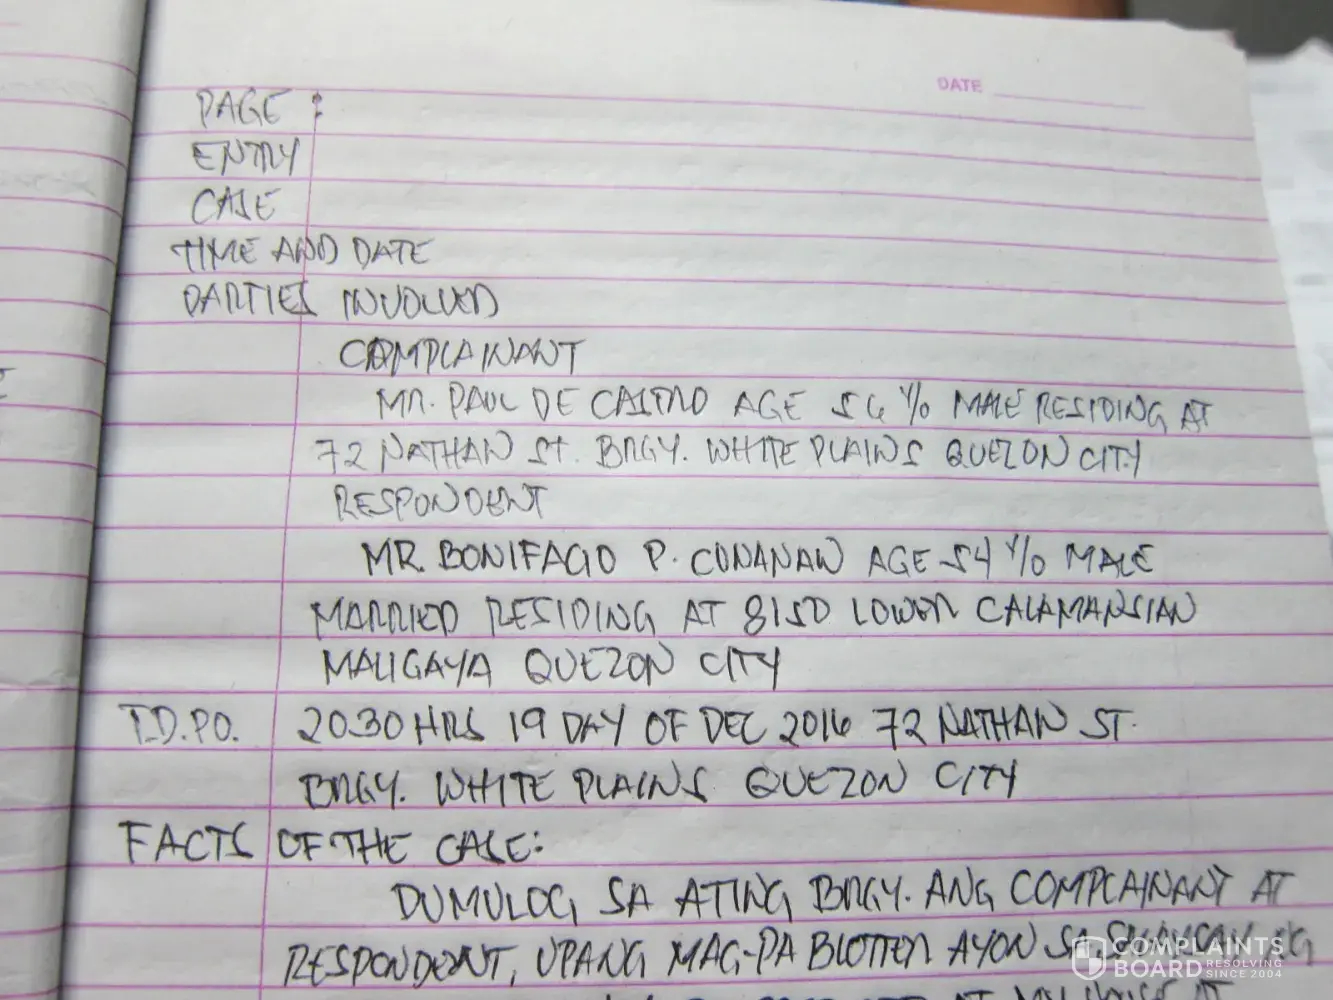 DATE
PAGE :
ENTRY
CASE
TIME AND DATE
PARTIES INVOLVED
COMPLAINANT
MR. PAUL DE CASTRO AGE 56 Y/O MALE RESIDING AT
72 NATHAN ST. BRGY. WHITE PLAINS QUEZON CITY
RESPONDENT
MR. BONIFACIO P. CUNANAN AGE 54 Y/O MALE
MARRIED RESIDING AT 815D LOWER CALAMANSIAN
MALIGAYA QUEZON CITY
T.D.PO. 2030 HRS 19 DAY OF DEC 2016 72 NATHAN ST.
BRGY. WHITE PLAINS QUEZON CITY
FACTS OF THE CASE:
DUMULOG SA ATING BRGY. ANG COMPLAINANT AT
RESPONDENT, UPANG MAG-PA BLOTTER AYON SA NG
AT MY HOUSE AT
COMPLAINTS
BOARD RESOLVING SINCE 2004